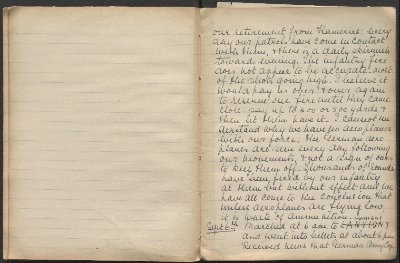 our retirement from Hameries. Every
day our patrols have come in contact
with them, & there is a daily skirmish
towards evening. The infantry fire
does not appear to be accurate, most
of the shots going high. I believe it
would pay us over & over again
to reserve our fire until they came
close say up to 200 or 300 yards &
then let them have it. I cannot un
derstand why we have no aeroplanes
with our force, the German aero
planes are seen every day following
our movements, & not a sign of ours
to keep them off. Thousands of rounds
have been fired by our infantry
at them but without effect and we
have all come to the conclusion that
unless aeroplanes are flying low
it is waste of ammunition.
Sept 5th Marched at 6 am to LANTIGNY
and went into billets at about 6 pm
Received news that German Army Corps